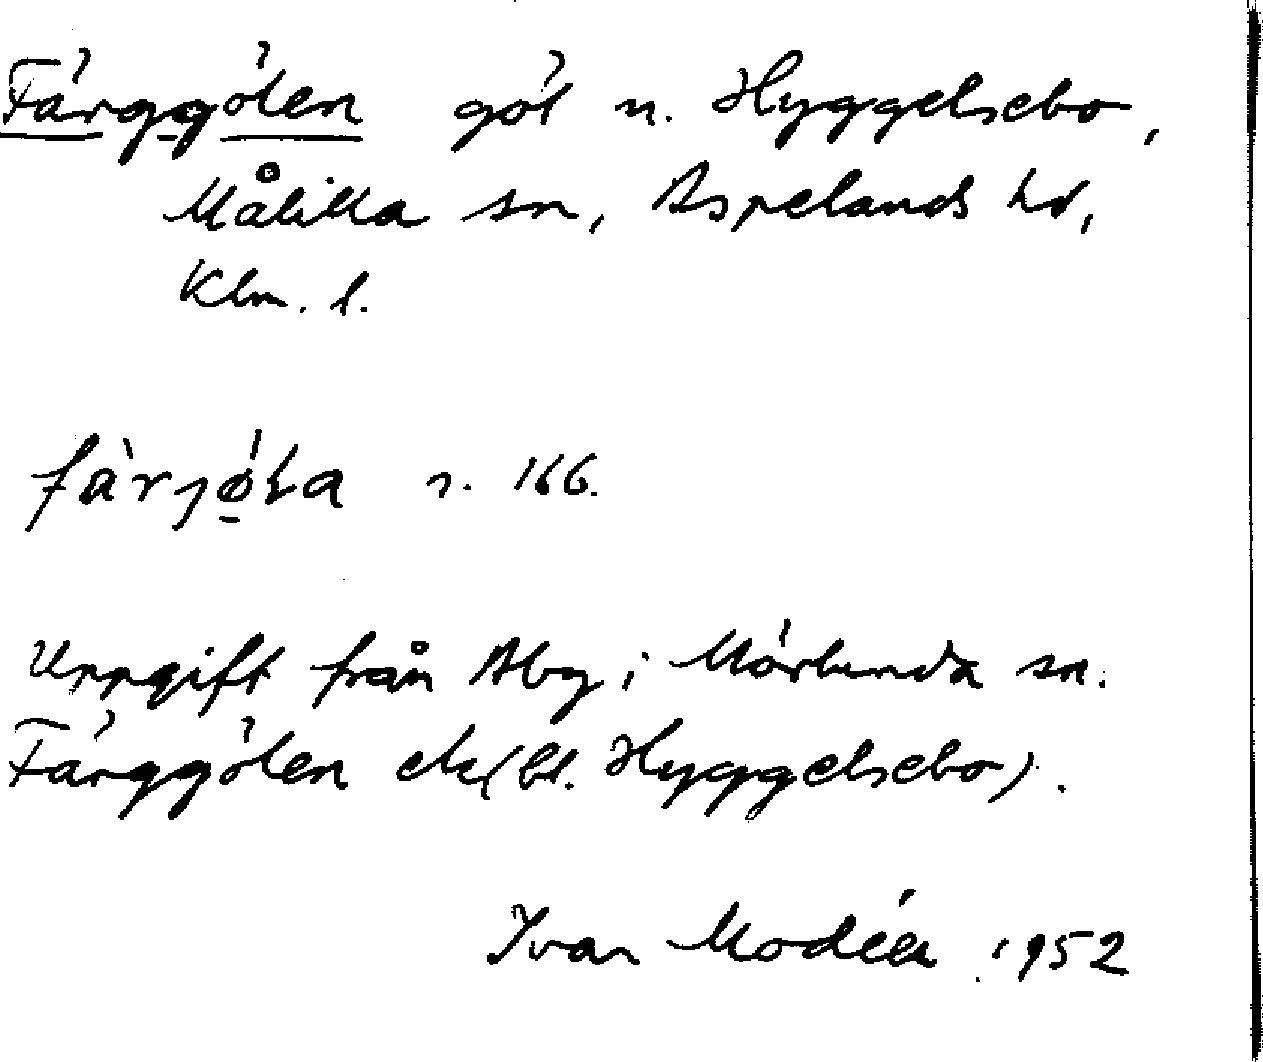 Färggölen göl n. Hyggelsebo,
Målilla sn, Aspelands hd,
Klm. l.
s. 166.
Uppgift från Åby i Mörlunda sn.
Färggölen ek (bl. Hyggelsebo).
Ivar Modéer 1952